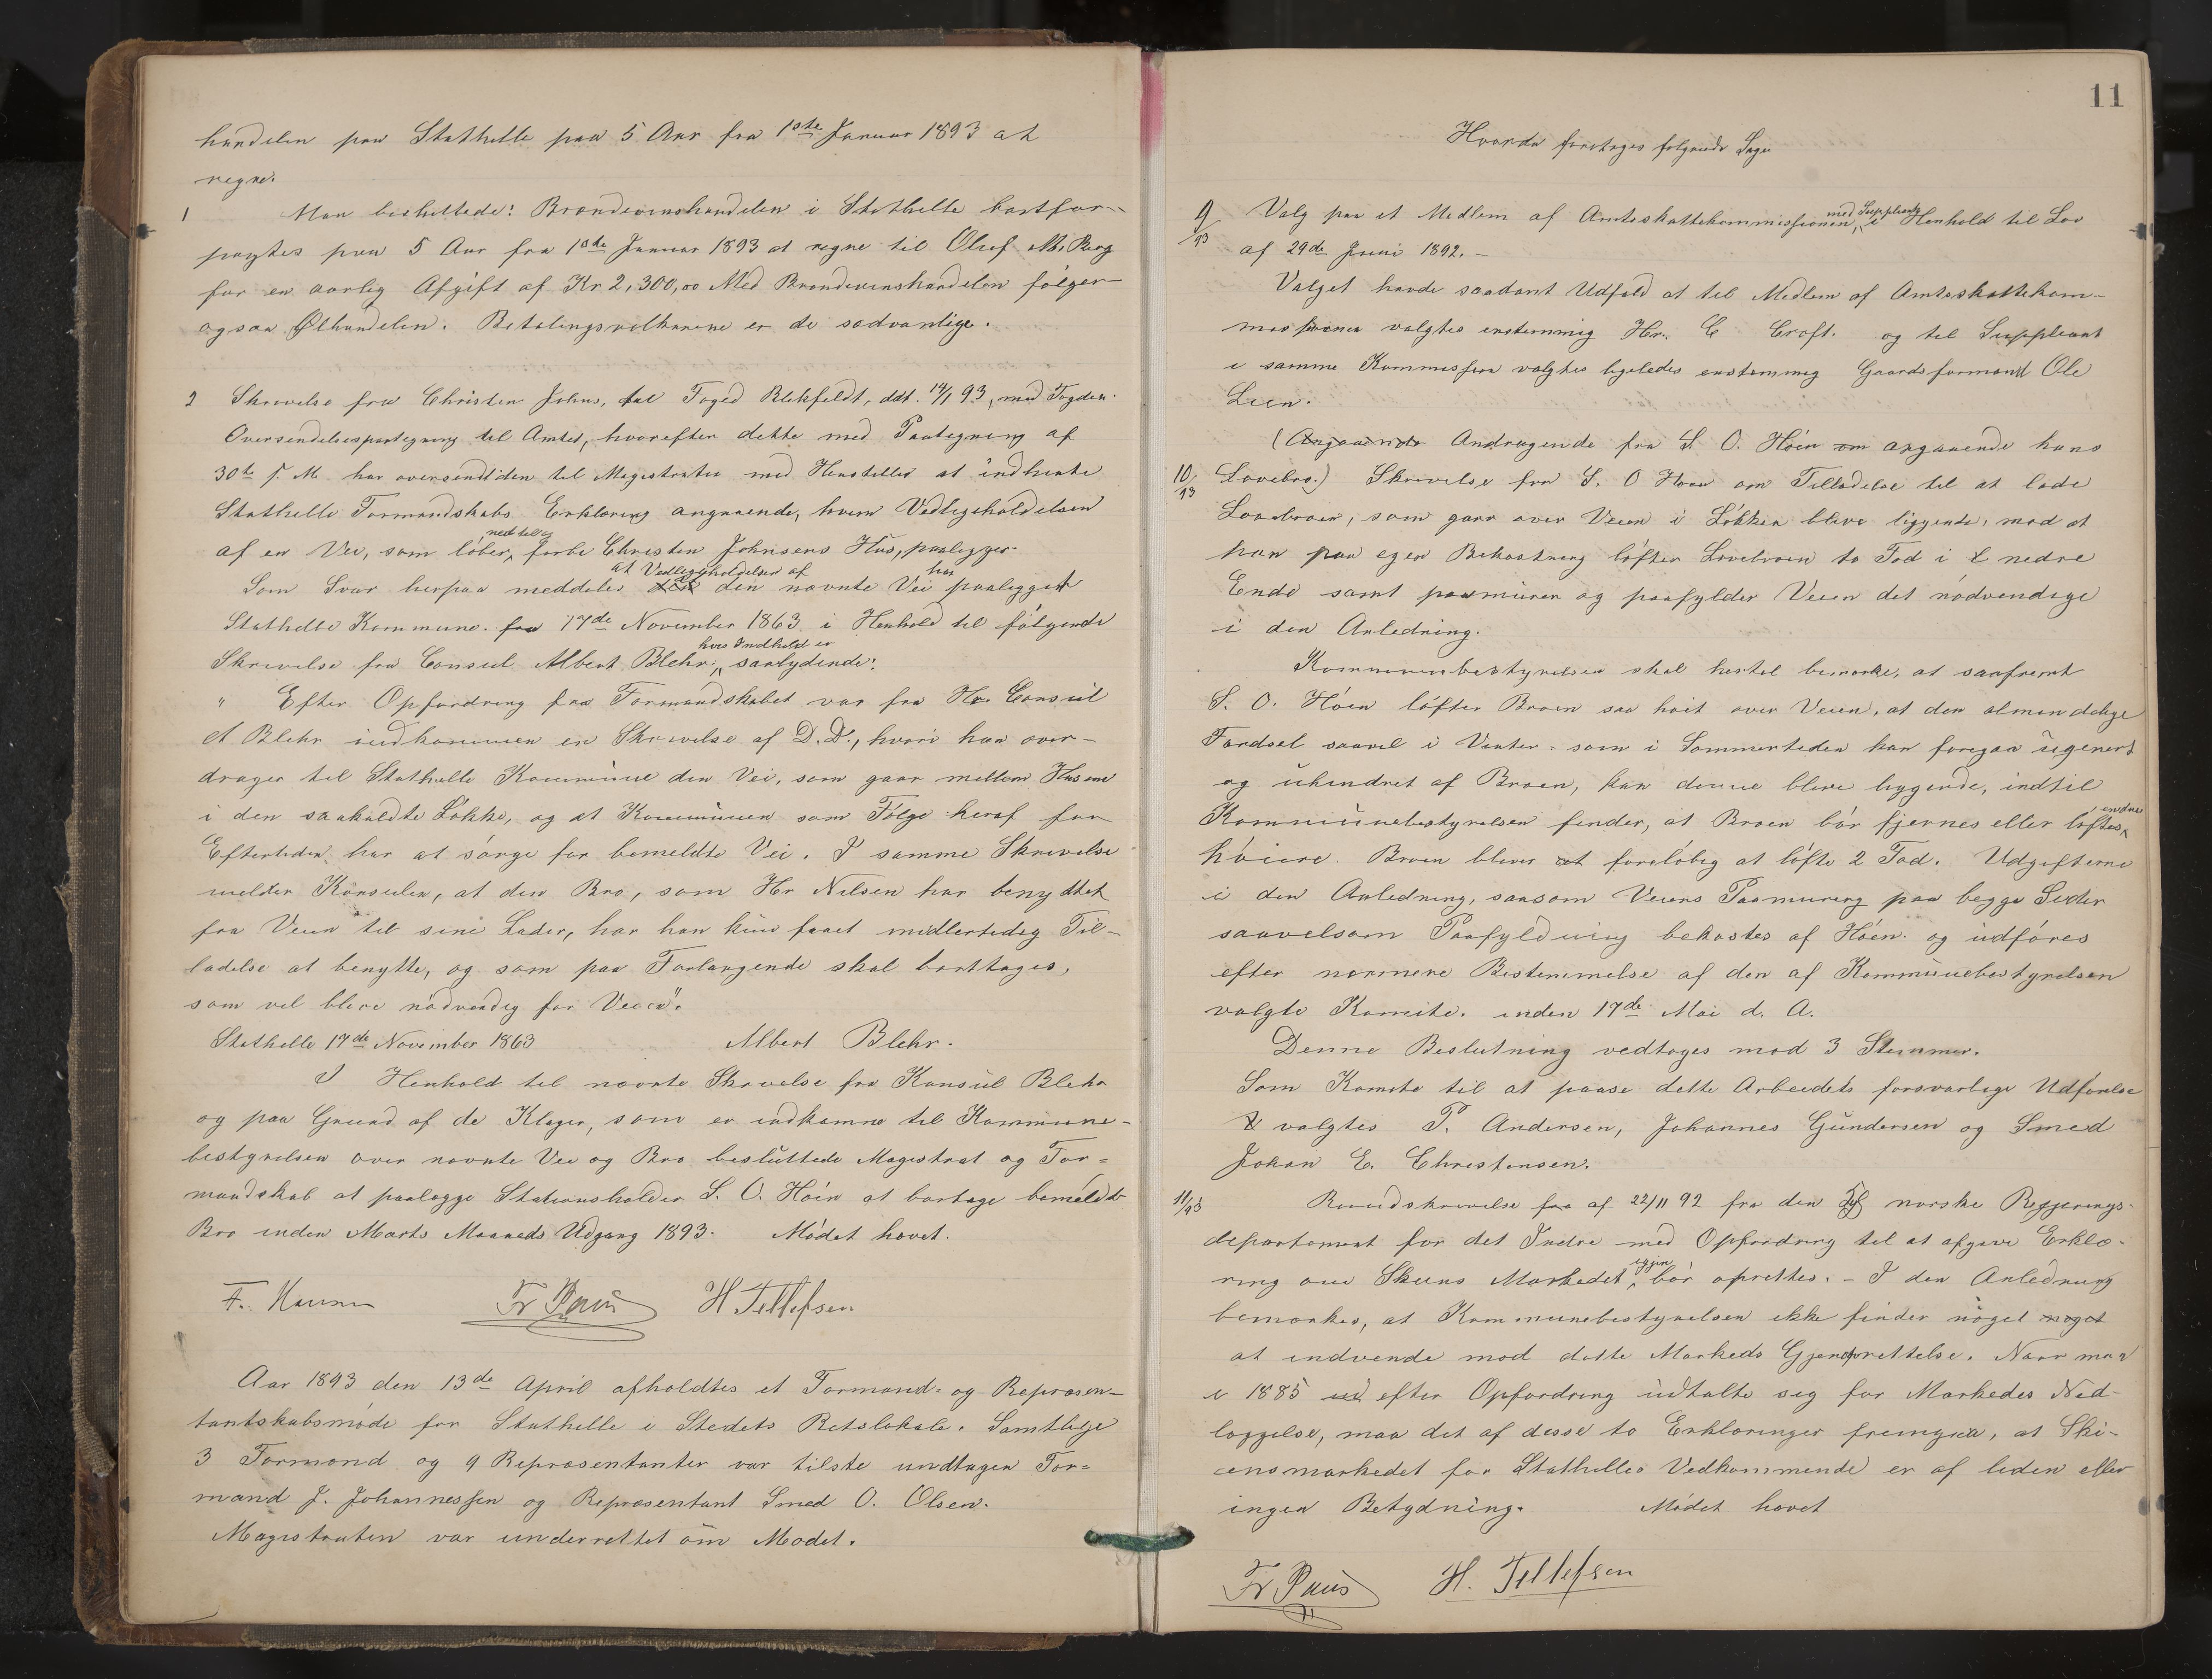 handelen paa Stathelle paa 5 Aar fra 1ste Januar 1893 at
regne.
1 Man besluttede: Brændevinshandelen i Stathelle bortfor-
pagtes paa 5 Aar fra 1ste Januar 1893 at regne til Oluf M. Berg
for en aarlig Afgift af Kr 2,300,00 Med Brændevinshandelen følger
ogsaa Ølhandelen. Betalingsvilkaarene er de sædvanlige.
2 Skrivelse fra Christen Johns, til Foged Blekfeldt, ddt. 14/1 93, med Fogdens
Oversendelsespaategning til Amtet, hvorefter dette med Paategning af
30te f. M. har oversendt den til Magistraten med Henstilled at indhente
Stathelle Formandskabs Erklæring angaaende, hvem Vedligeholdelsen
af en Vei, som løber, nedtil forbi Christen Johnsens Hus, paaligger.
Som Svar herpaa meddeles at Vedligeholdelsen af den nævnte Vei har paaligget
Stathelle Kommune fra 17de November 1863 i Henhold til følgende
Skrivelse fra Consul Albert Blehr, hvis Indhold er saalydende:
" Efter Opfordring fra Formandskabet var fra Hr. Consul
A Blehr indkommen en Skrivelse af D.D., hvori han over-
drager til Stathelle Kommune den Vei, som gaar mellem Husene
i den saakaldte Løkke, og at Kommunen som Følge heraf for
Eftertiden har at sørge for bemeldte Vei. I samme Skrivelse
melder Konsulen, at den Bro, som Hr Nilsen har benyttet
fra Veien til sine Lader, har han kun faaet midlertidig Til-
ladelse at benytte, og som paa Forlangende skal borttages,
som vil blive nødvendig for Veien".
Stathelle 17de November 1863 Albert Blehr.
I Henhold til nævnte Skrivelse fra Konsul Blehr
og paa Grund af de Klager, som er indkomne til Kommune-
bestyrelsen over nævnte Vei og Bro besluttede Magistrat og For=
mandskab at paalægge Stationsholder S. O. Høen at borttage bemeldte
Bro inden Marts Maaneds Udgang 1893. Mødet hævet.
Fr Paus H Tellefsen
Aar 1893 den 13de April afholdtes et Formand- og Repræsen-
tantskabsmøde for Stathelle i Stedets Retslokale. Samtlige
3 Formænd og 9 Repræsentanter var tilste undtagen For=
mand J. Johannessen og Repræsentant Smed O. Olsen.
Magistraten var underrettet om Mødet.
11
Hvorda foretages følgende Sager
9/93 Valg paa et Medlem af Amtsskattekommissionen, med Suppleant i Henhold til Lov
af 29de Juni 1892.-
Valget havde saadant Udfald at til Medlem af Amtsskattekom-
missionen valgtes enstemmig Hr. C Croft. og til Suppleant
i samme Kommission valgtes ligeledes enstemmig Gaardsformand Ole
Lien.
(Angaaende Andragende fra S. O. Høen om angaaende hans
10/93 Lovebro.) Skrivelse fra S. O Høen om Tilladelse til at lade
Lovebroen, som gaar over Veien i Løkken blive liggende, mod at
han paa egen Bekostning løfter Lovebroen to Fod i nedre
Ende samt paamurer og paafylder Veien det nødvendige
i den Anledning.
Kommunebestyrelsen skal hertil bemærke, at saafremt
S. O. Høen løfter Broen saa høit over Veien, at den almindelige
Færdsel saavel i Vinter- som i Sommertiden kan foregaa ugenert
og uhindret af Broen, kan denne blive liggende, indtil
Kommunebestyrelsen finder, at Broen bør fjernes eller løftes endnu
høiere. Broen bliver at foreløbig at løfte 2 Fod. Udgifterne
i den Anledning, saasom Veiens Paamuring paa begge Sider
saavelsom Paafyldning bekostes af Høen og udføres
efter nærmere Bestemmelse af den af Kommunebestyrelsen
valgte Komite. inden 17de Mai d. A.
Denne Beslutning vedtoges mod 3 Stemmer.
Som Komite til at paase dette Arbeidets forsvarlige Udførelse
valgtes P. Andersen, Johannes Gundersen og Smed
Johan E. Christensen.
11/93 Rundskrivelse fra af 22/11 92 fra den norske Regjerings-
departement for det Indre med Opfordring til at afgive Erklæ-
ring om Skiens Markedet igjen bør oprettes. - I den Anledning
bemærkes, at Kommunebestyrelsen ikke finder noget noget
at indvende mod dette Markeds Gjenoprettelse. Naar man
i 1885 ud efter Opfordring udtalte sig for Markedes Ned-
læggelse, maa det af disse to Erklæringer fremgaa, at Ski-
ensmarkedet for Stathelles Vedkommende er af liden eller
ingen Betydning. Mødet hævet
Fr Paus H. Tellefsen